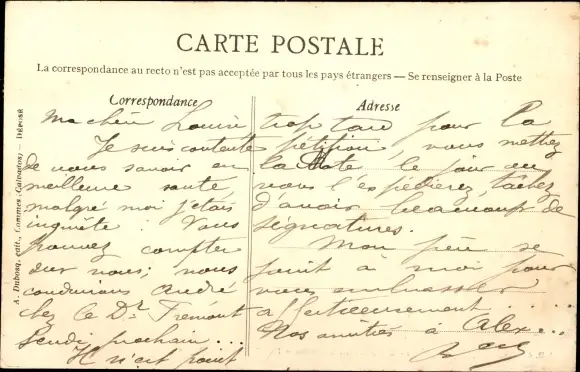 CARTE POSTALE
La correspondance au recto n'est pas acceptée par tous les pays étrangers — Se renseigner à la Poste
Correspondance
Ma chère Louise
Je suis contente
de vous savoir en
meilleure santé,
malgré moi j'étais
inquiète. Vous
pouvez compter
sur nous; nous
conduirons André
chez le Dr Frémont
Jeudi prochain...
Il n'est point
Adresse
trop tard pour la
pétition, vous mettez
la date le jour où
vous l'expédierez, tâchez
d'avoir beaucoup de
signatures.
Mon père se
joint à moi pour
vous embrasser
affectueusement...
Nos amitiés à Alex...
A. Dubosq, édit., Commes (Calvados) — DÉPOSÉ